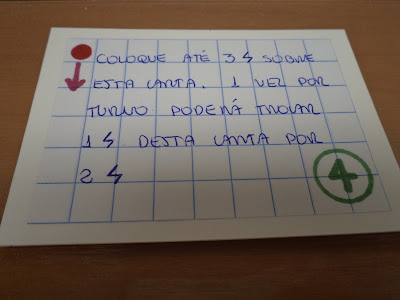 COLOQUE ATÉ 3 ϟ SOBRE
ESTA CARTA. 1 VEZ POR
TURNO PODERÁ TROCAR
1 ϟ DESTA CARTA POR
2 ϟ
4